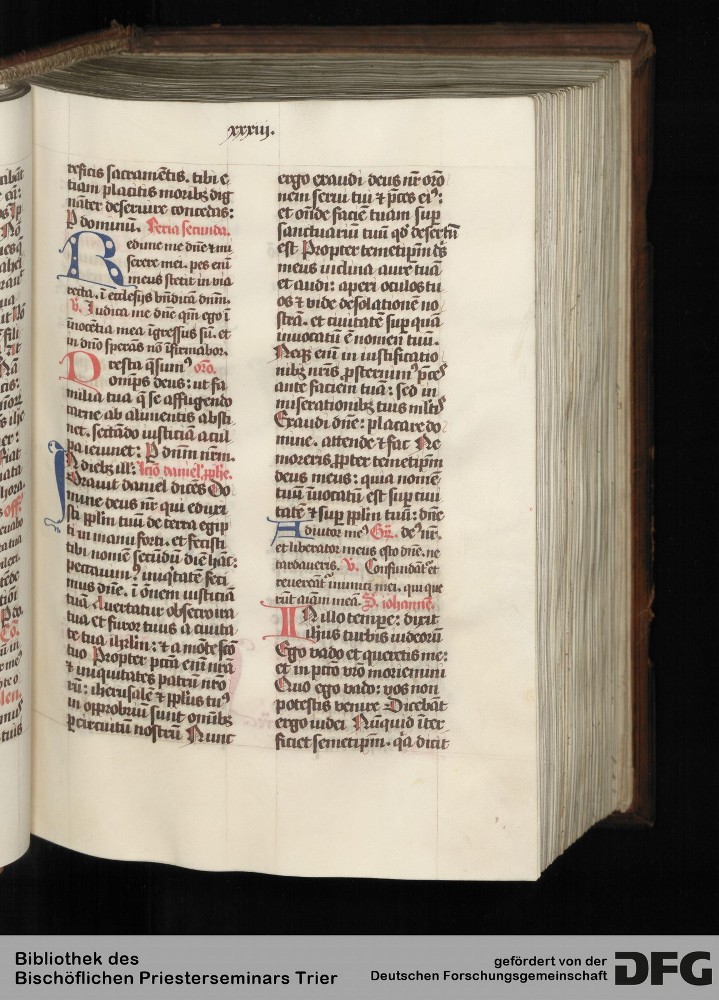 xxxiij.
reficis sacramētis. tibi e
tiam placitis moribꝫ dig
nāter deseruire concedas:
P dominū. Feria secunda.
Redime me dn̄e ⁊ mi
serere mei. pes eni
meus stetit in via
recta. ī ecclesijs bn̄dicā dn̄m.
v. Iudica me dn̄e qm̄ ego ī
īnocētia mea īgressus sū. et
in dn̄o sperās nō īfirmabor.
Presta q̄sumꝰ orō.
omps deus: ut fa
milia tua q̄ se affligendo
carne ab alimentis absti
net. sectādo iusticiā a cul
pa ieiunet: P dn̄m nr̄m.
In diebꝫ ill': lcō daniel' ꝓphe.
Orauit daniel dicēs Do
mine deus nr̄ qui eduxi
sti pplm tuū de terra egip
ti in manu forti. et fecisti
tibi nomē secūdū diē hāc:
peccauimꝰ iniq̄tatē feci
mus dn̄e. ī ōnem iusticiā
tuā Auertatur obsecro ira
tua et furor tuus a ciuita
te tua ihrlm: ⁊ a mōte scō
tuo Propter pccā eni nr̄a
⁊ iniquitates patrū nr̄o
rū: iherusalē ⁊ pplus tuꝰ
in opprobriū sunt omībꝫ
per circuitū nostrū Nunc
ergo exaudi deus nr̄ orō
nem serui tui ⁊ p̄ces eiꝰ:
et on̄de faciē tuam sup
sanctuariū tuū qd' desertū
est Propter temetip̄m dꝰ
meus inclina aurē tuā
et audi: aperi oculos tu
os ⁊ vide desolationē no
strā. et ciuitatē sup quā
inuocatū ē nomen tuū.
Neqꝫ eni in iustificatio
nibꝫ nr̄is ꝓsternimꝰ p̄ces
ante faciem tuā: sed in
miserationibꝫ tuis mltꝭ
Exaudi dn̄e: placare do
mine. attende ⁊ fac Ne
moreris ꝓpter temetip̄m
deus meus: quia nomē
tuū īuocatū est sup ciui
tatē ⁊ sup pplm tuū: dn̄e
Adiutor meꝰ Gr̄. deꝰ nr̄.
et liberator meus esto dn̄e. ne
tardaueris. v. Confundāt' et
reuereāt' inimici mei. qui que
rūt aīam meā. S. iohannē.
In illo tempe: dixit
ihus turbis iudeorū
Ego vado et queretis me:
et in pccō vr̄o moriemini
Quo ego vado: vos non
potestis venire Dicebāt
ergo iudei Nūquid īter
ficiet semetip̄m. q̄a dicit
Bibliothek des
Bischöflichen Priesterseminars Trier
gefördert von der
Deutschen Forschungsgemeinschaft
DFG